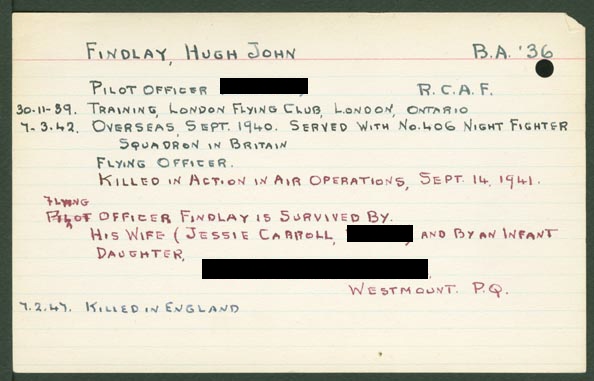 FINDLAY, HUGH JOHN B.A. '36
PILOT OFFICER R.C.A.F.
30-11-39. TRAINING, LONDON FLYING CLUB, LONDON, ONTARIO
7-3-42. OVERSEAS, SEPT. 1940. SERVED WITH No. 406 NIGHT FIGHTER
SQUADRON IN BRITAIN
FLYING OFFICER.
KILLED IN ACTION IN AIR OPERATIONS, SEPT. 14, 1941.
FLYING
PILOT OFFICER FINDLAY IS SURVIVED BY.
HIS WIFE (JESSIE CARROLL, AND BY AN INFANT
DAUGHTER,
WESTMOUNT. P.Q.
7.2.47. KILLED IN ENGLAND